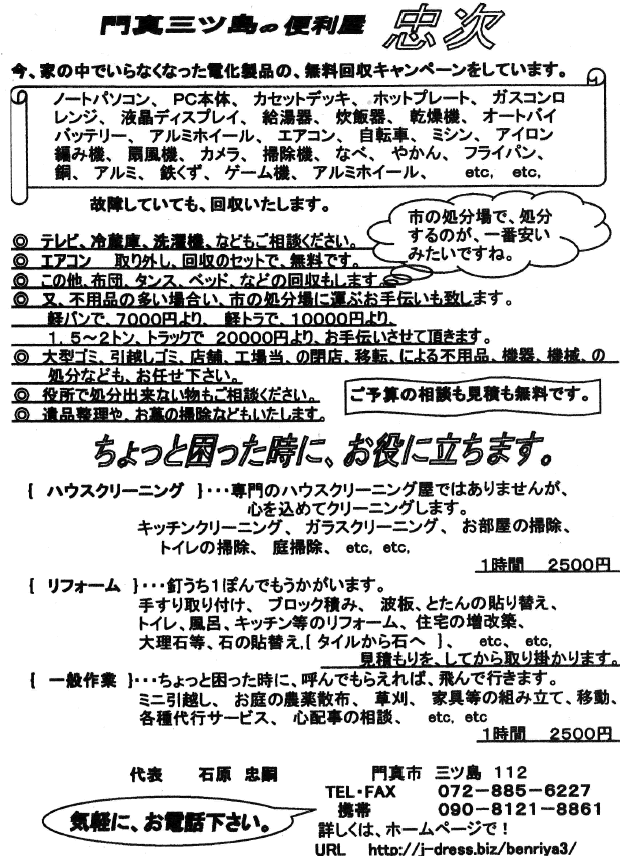 門真三ツ島の便利屋 忠次
今、家の中でいらなくなった電化製品の、無料回収キャンペーンをしています。
ノートパソコン、 PC本体、 カセットデッキ、 ホットプレート、 ガスコンロ
レンジ、 液晶ディスプレイ、 給湯器、 炊飯器、 乾燥機、 オートバイ
バッテリー、 アルミホイール、 エアコン、 自転車、 ミシン、 アイロン
編み機、 扇風機、 カメラ、 掃除機、 なべ、 やかん、 フライパン、
銅、 アルミ、 鉄くず、 ゲーム機、 アルミホイール、 etc, etc,
故障していても、回収いたします。
市の処分場で、処分
するのが、一番安い
みたいですね。
◎ テレビ、冷蔵庫、洗濯機、などもご相談ください。
◎ エアコン 取り外し、回収のセットで、無料です。
◎ この他、布団、タンス、ベッド、などの回収もします。
◎ 又、不用品の多い場合い、市の処分場に運ぶお手伝いも致します。
軽バンで、7000円より、 軽トラで、10000円より、
1.5~2トン、トラックで 20000円より、お手伝いさせて頂きます。
◎ 大型ゴミ、引越しゴミ、店舗、工場当、の閉店、移転、による不用品、機器、機械、の
処分なども、お任せ下さい。
◎ 役所で処分出来ない物もご相談ください。
◎ 遺品整理や、お墓の掃除などもいたします。
ご予算の相談も見積も無料です。
ちょっと困った時に、お役に立ちます。
{ ハウスクリーニング }・・・専門のハウスクリーニング屋ではありませんが、
心を込めてクリーニングします。
キッチンクリーニング、 ガラスクリーニング、 お部屋の掃除、
トイレの掃除、 庭掃除、 etc, etc,
1時間 2500円
{ リフォーム }・・・釘うち1ぽんでもうかがいます。
手すり取り付け、 ブロック積み、 波板、とたんの貼り替え、
トイレ、風呂、キッチン等のリフォーム、住宅の増改築、
大理石等、石の貼替え,{ タイルから石へ }、 etc, etc,
見積もりを、してから取り掛かります。
{ 一般作業 }・・・ちょっと困った時に、呼んでもらえれば、飛んで行きます。
ミニ引越し、 お庭の農薬散布、 草刈、 家具等の組み立て、移動、
各種代行サービス、 心配事の相談、 etc, etc
1時間 2500円
代表 石原 忠嗣
門真市 三ツ島 112
TEL・FAX 072-885-6227
携帯 090-8121-8861
気軽に、お電話下さい。
詳しくは、ホームページで!
URL http://j-dress.biz/benriya3/